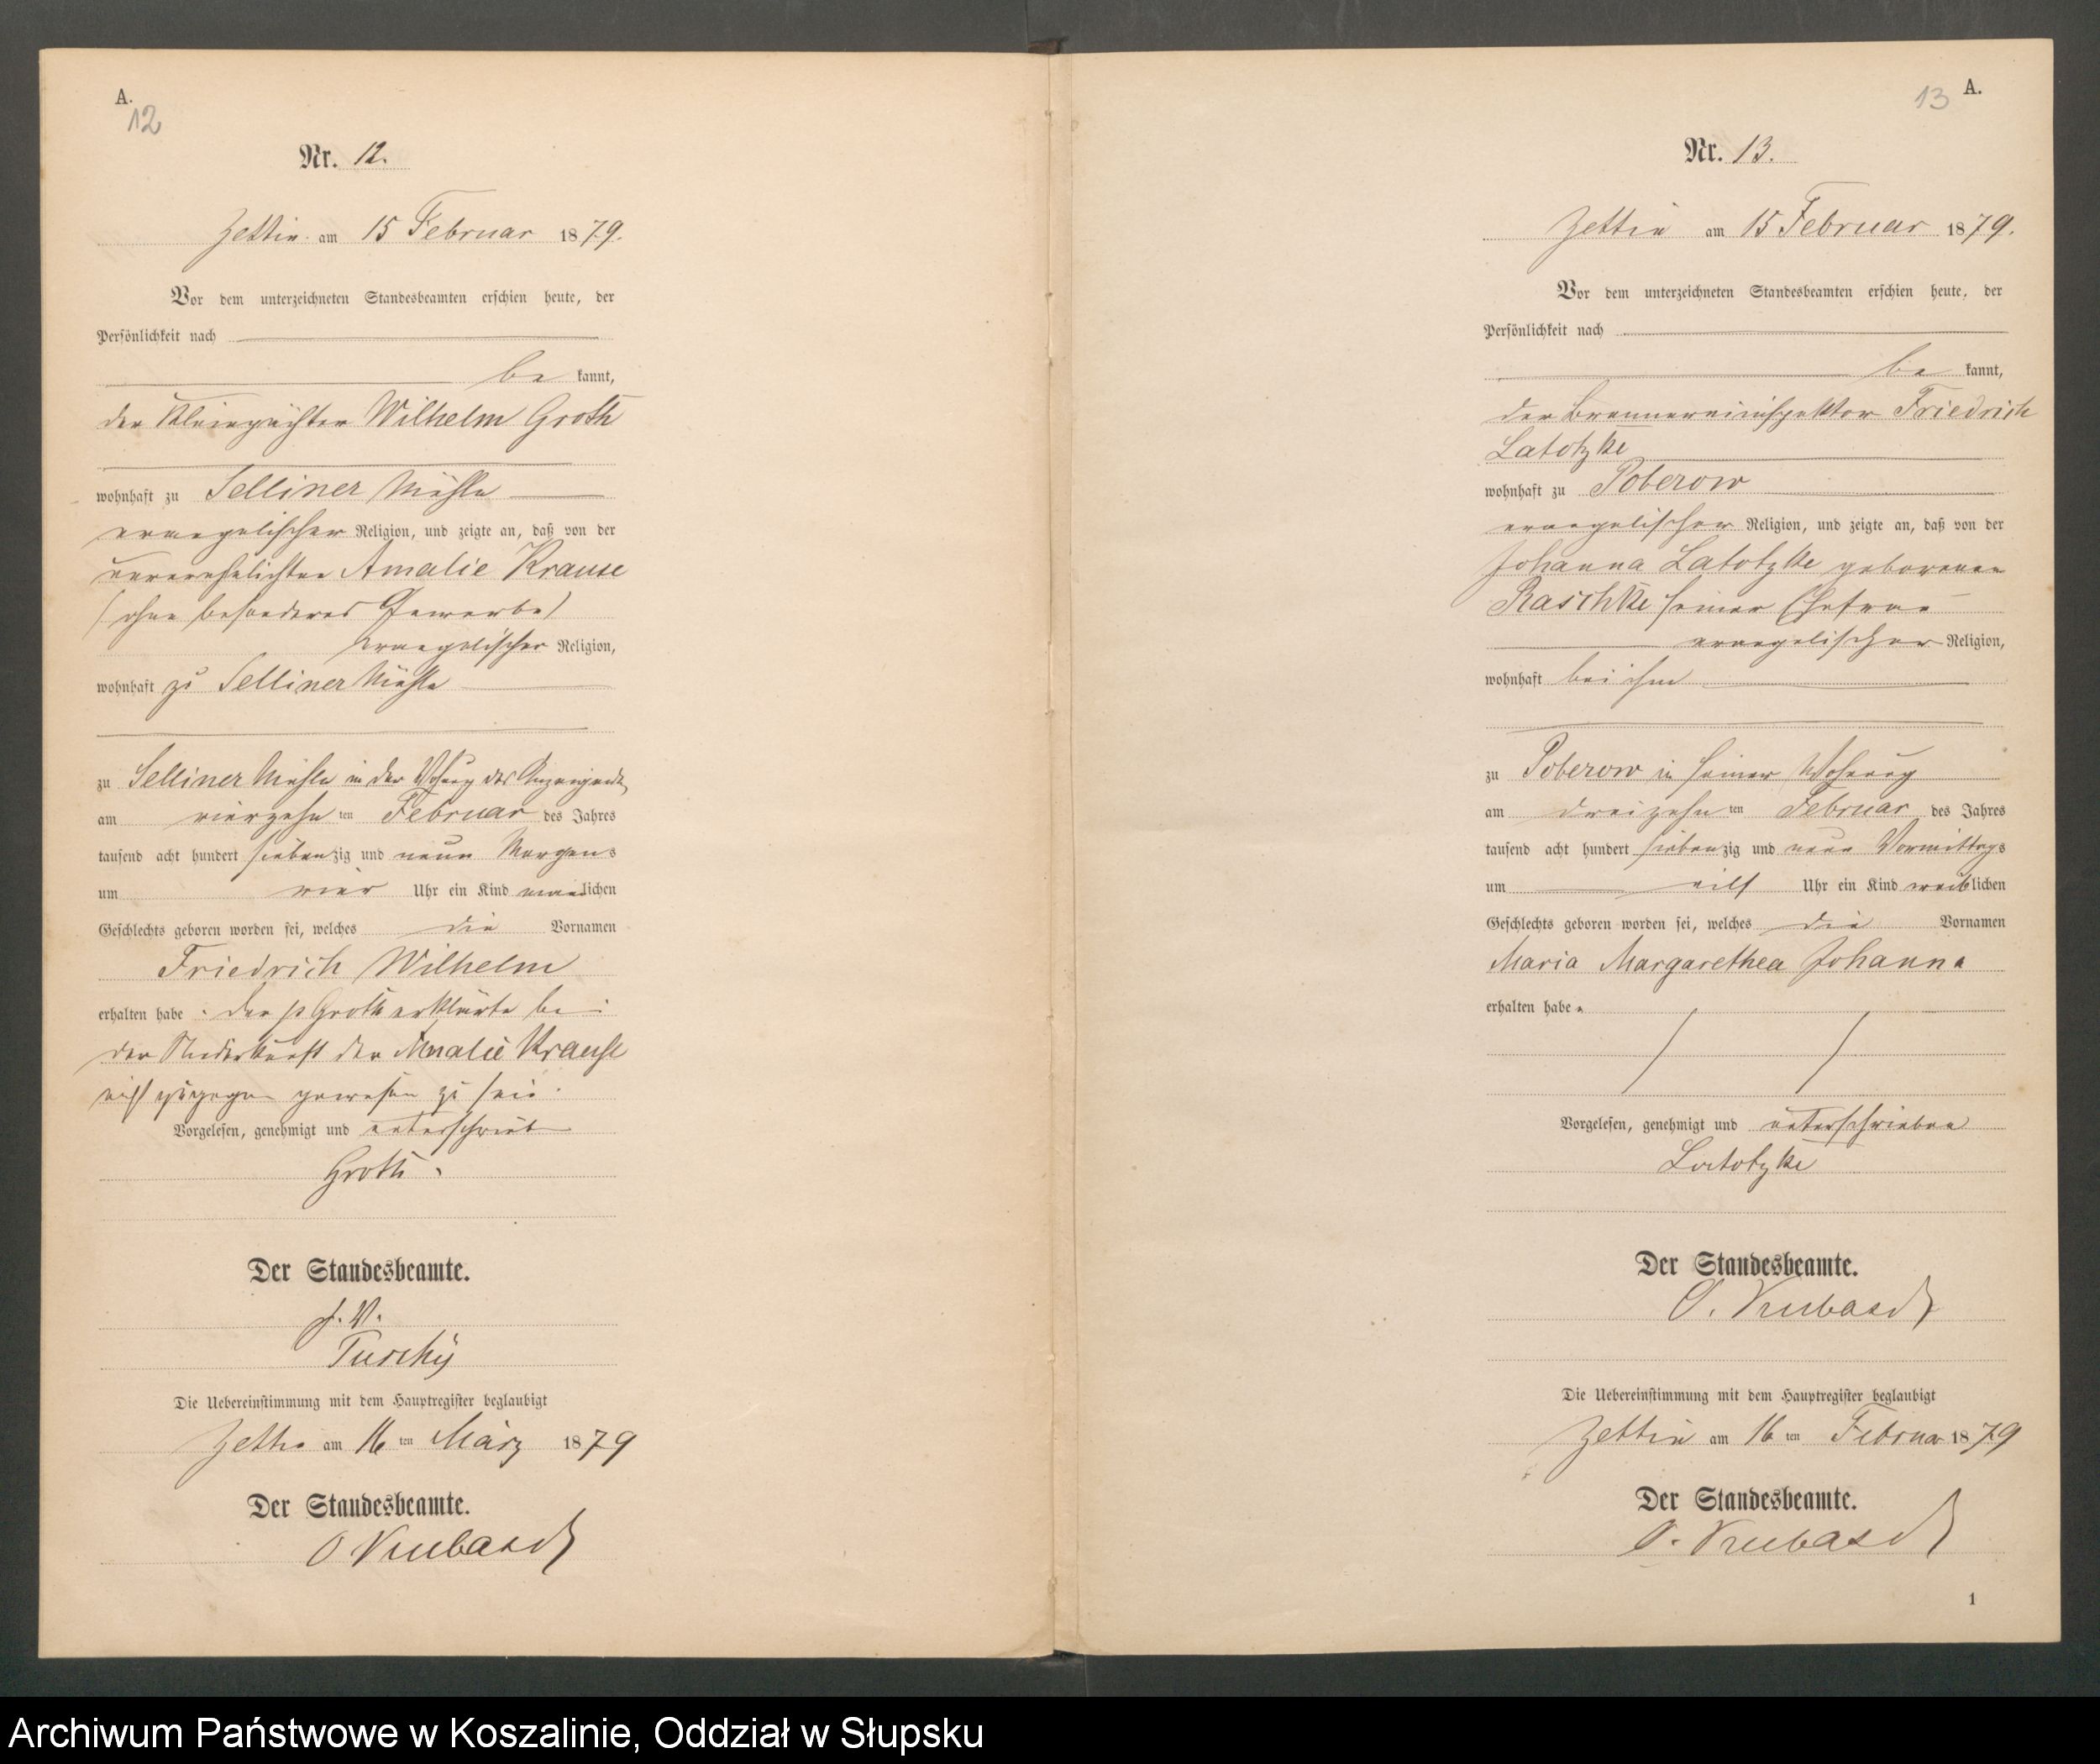 A.
12
Nr. 12.
Zettin am 15 Februar 1879.
Vor dem unterzeichneten Standesbeamten erschien heute, der
Persönlichkeit nach
be kannt,
der Kleinpächter Wilhelm Groth
wohnhaft zu Selliner Mühle
evangelischer Religion, und zeigte an, daß von der
unverehelichten Amalie Krause
(ohne besonderes Gewerbe)
evangelischer Religion,
wohnhaft zu Selliner Mühle
zu Selliner Mühle in der Wohnung des Anzeigenden
am vierzehn ten Februar des Jahres
tausend acht hundert siebenzig und neun Morgens
um vier Uhr ein Kind männlichen
Geschlechts geboren worden sei, welches die Vornamen
Friedrich Wilhelm
erhalten habe. der p Groth erklärte bei
der Niederkunft der Amalie Krause
zugegen gewesen zu sein.
Vorgelesen, genehmigt und unterschrieb
Groth.
Der Standesbeamte.
J. V.
Die Uebereinstimmung mit dem Hauptregister beglaubigt
am 16 ten März 1879
Der Standesbeamte.
13
A.
Nr. 13.
Zettin am 15 Februar 1879.
Vor dem unterzeichneten Standesbeamten erschien heute, der
Persönlichkeit nach
be kannt,
der Brennereiinspektor Friedrich
Latotzke
wohnhaft zu Poberow
evangelischer Religion, und zeigte an, daß von der
Johanna Latotzke geborenen
Raschke seiner Ehefrau
evangelischer Religion,
wohnhaft bei ihm
zu Poberow in seiner Wohnung
am dreizehn ten Februar des Jahres
tausend acht hundert siebenzig und neun Vormittags
um eilf Uhr ein Kind weiblichen
Geschlechts geboren worden sei, welches die Vornamen
Maria Margarethea Johanna
erhalten habe.
Vorgelesen, genehmigt und unterschrieben
Latotzke
Der Standesbeamte.
Die Uebereinstimmung mit dem Hauptregister beglaubigt
Zettin am 16 ten Februar 1879
Der Standesbeamte.
1
Archiwum Państwowe w Koszalinie, Oddział w Słupsku